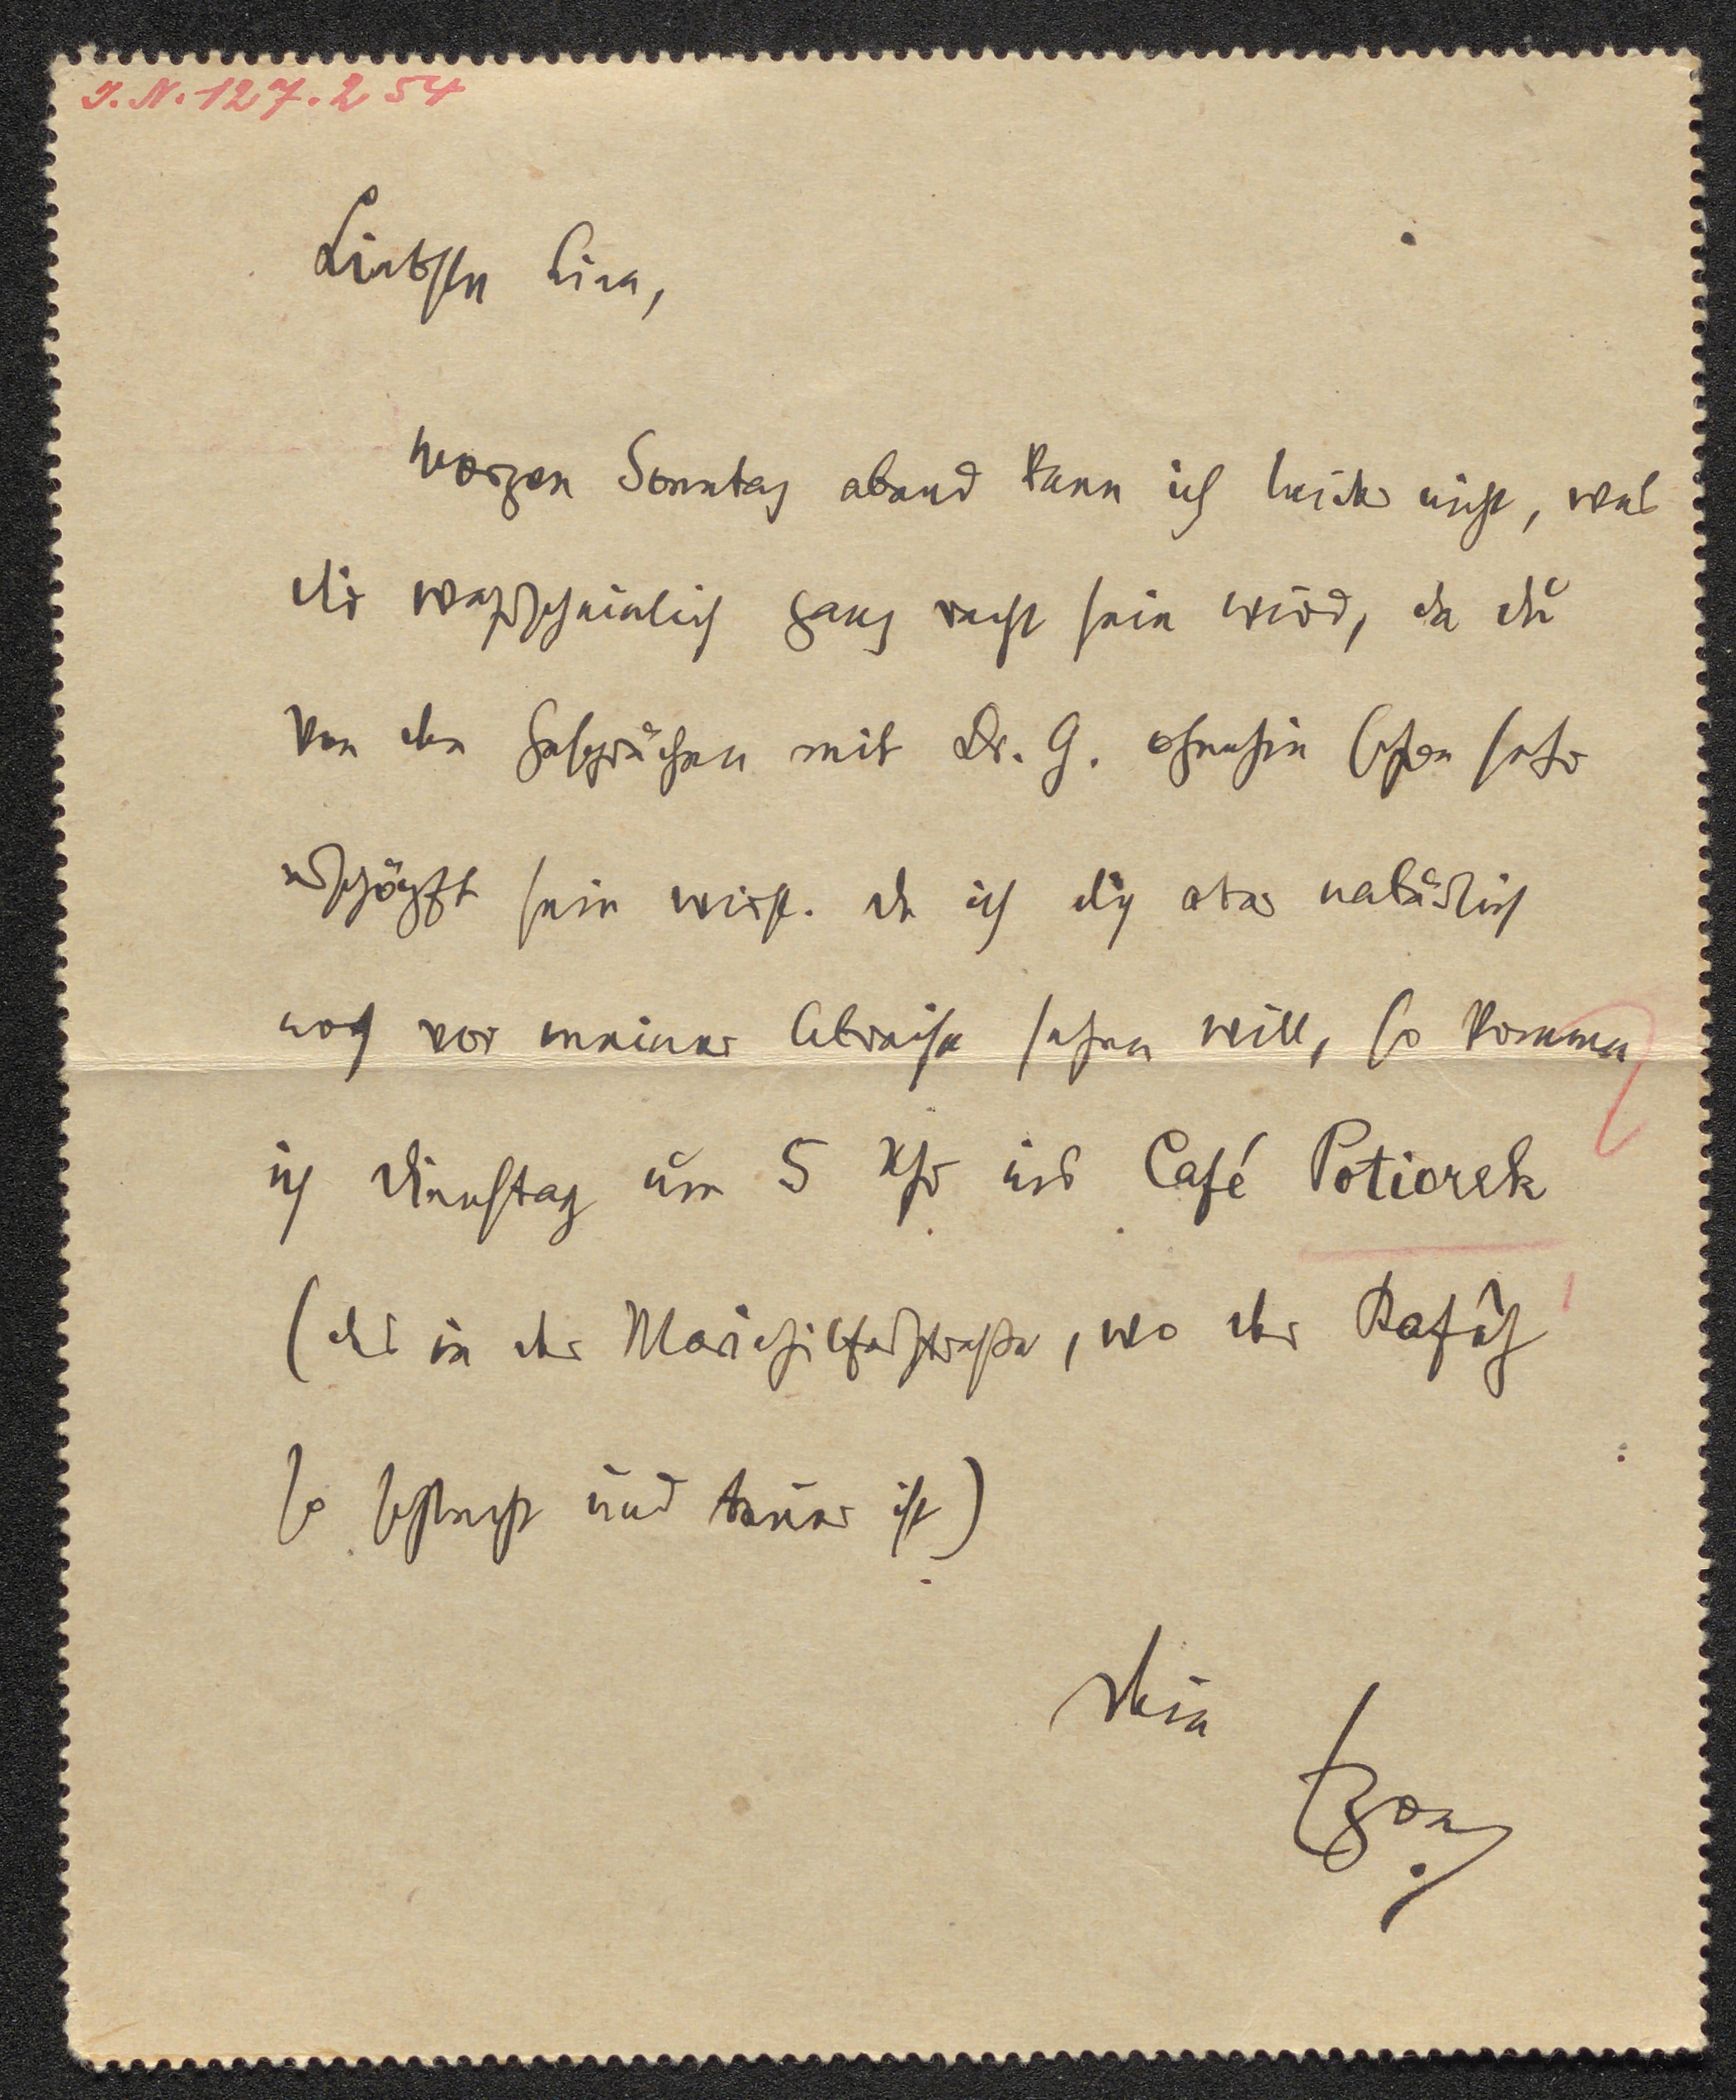 J.N. 127.254
Liebste Lina,
morgen Sonntag abend kann ich leider nicht, was
dir wahrscheinlich ganz recht sein wird, da du
von den Gesprächen mit Dr. G. ohnehin schon sehr
erschöpft sein wirst. Da ich dich aber natürlich
noch vor meiner Abreise sehen will, so komme
ich Dienstag um 5 Uhr ins Café Potiorek
(das in der Mariahilferstraße, wo der Kaffee
so schlecht und teuer ist)
Dein
Egon